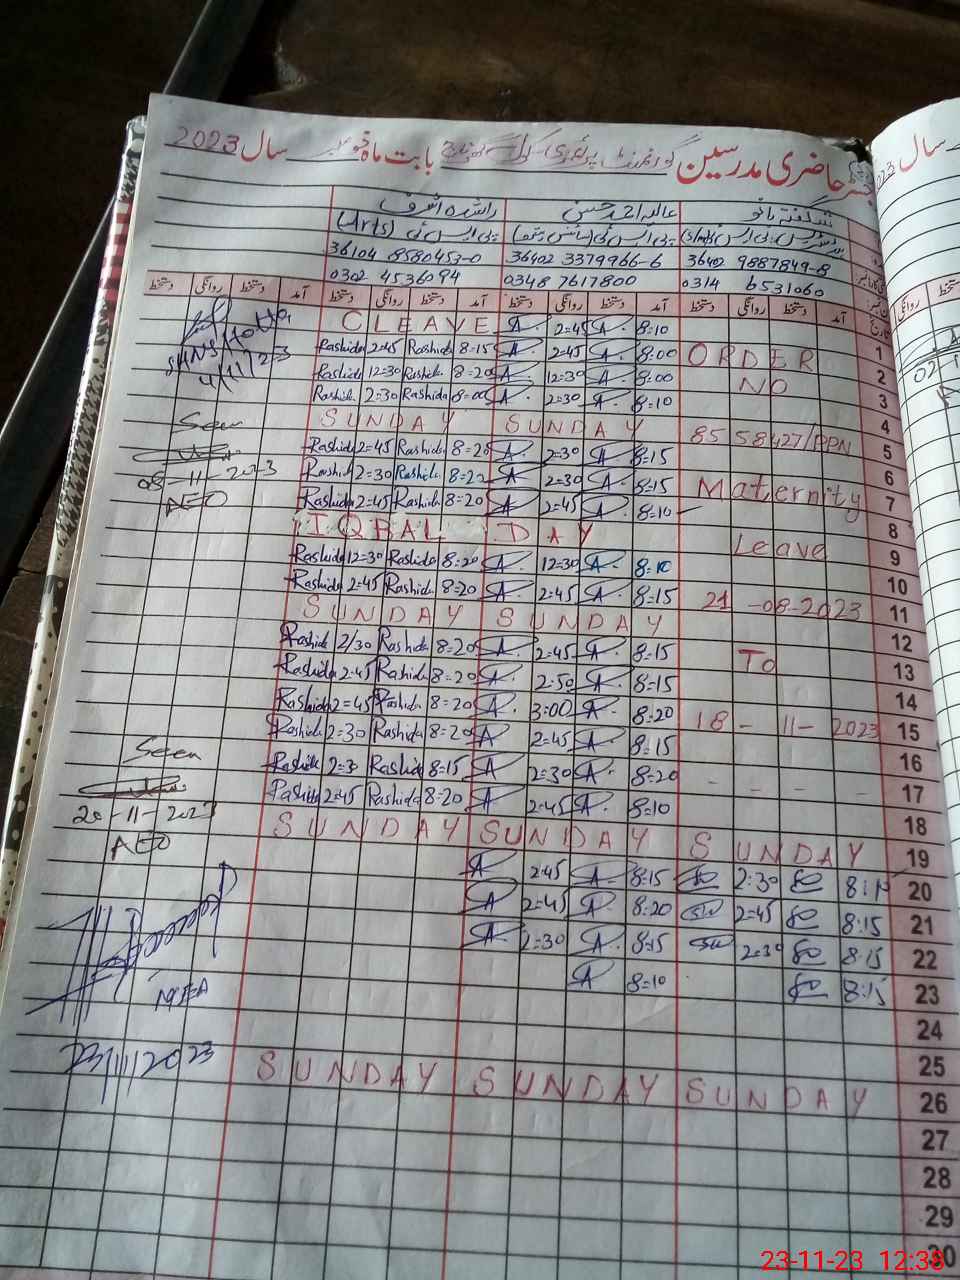 رجسٹر حاضری مدرسین گورنمنٹ پرائمری سکول بابت ماہ نومبر سال 2023
شگفتہ بانو عالیہ احمد حسن راشدہ اشرف
پی ایس ٹی (Arts)
36402 9887849-8 36402 3379966-6 36104 8580453-0
0314 6531060 0348 7617800 0302 4536094
آمد دستخط روانگی دستخط آمد دستخط روانگی دستخط آمد دستخط روانگی دستخط آمد دستخط روانگی دستخط
1 8=10 A. 2=45 A. C LEAVE
2 ORDER 8=00 A. 2=45 A. 8=15 Rashida 2=45 Rashida
3 NO 8=00 A. 12=30 A. 8=20 Rashida 12=30 Rashida
4 8=10 A. 2=30 A. 8=00 Rashida 2=30 Rashida
4/11/23
5 85 58427/PPN SUNDAY SUNDAY
Seen
6 8=15 A. 2=30 A. 8=20 Rashida 2=45 Rashida
08-11-2023
7 Maternity 8=15 A. 2=30 A. 8=20 Rashida 2=30 Rashida
AEO
8 8=10 A. 2=45 A. 8=20 Rashida 2=45 Rashida
9 Leave IQBAL DAY
10 8=10 A. 12=30 A. 8=20 Rashida 12=30 Rashida
11 21-08-2023 8=15 A. 2=45 A. 8=20 Rashida 2=45 Rashida
12 SUNDAY SUNDAY
13 To 8=15 A. 2=45 A. 8=20 Rashida 2/30 Rashida
14 8=15 A. 2=50 A. 8=20 Rashida 2=45 Rashida
15 18-11-2023 8=20 A. 3=00 A. 8=20 Rashida 2=45 Rashida
16 8=15 A. 2=45 A 8=20 Rashida 2=30 Rashida
Seen
17 - - - - 8=20 A. 2=30 A 8=15 Rashida 2=30 Rashida
20-11-2023
18 8=10 A. 2=45 A 8=20 Rashida 2=45 Rashida
AEO
19 SUNDAY SUNDAY SUNDAY
20 8:10 2:30 8=15 A. 2=45 A
21 8:15 2=45 8=20 A. 2=45 A
22 8:15 2=30 8=15 A. 2=30 A
23 8:15 8=10 A
MEA
24
23/11/2023
25
26 SUNDAY SUNDAY SUNDAY
27
28
29
30
23-11-23 12:38